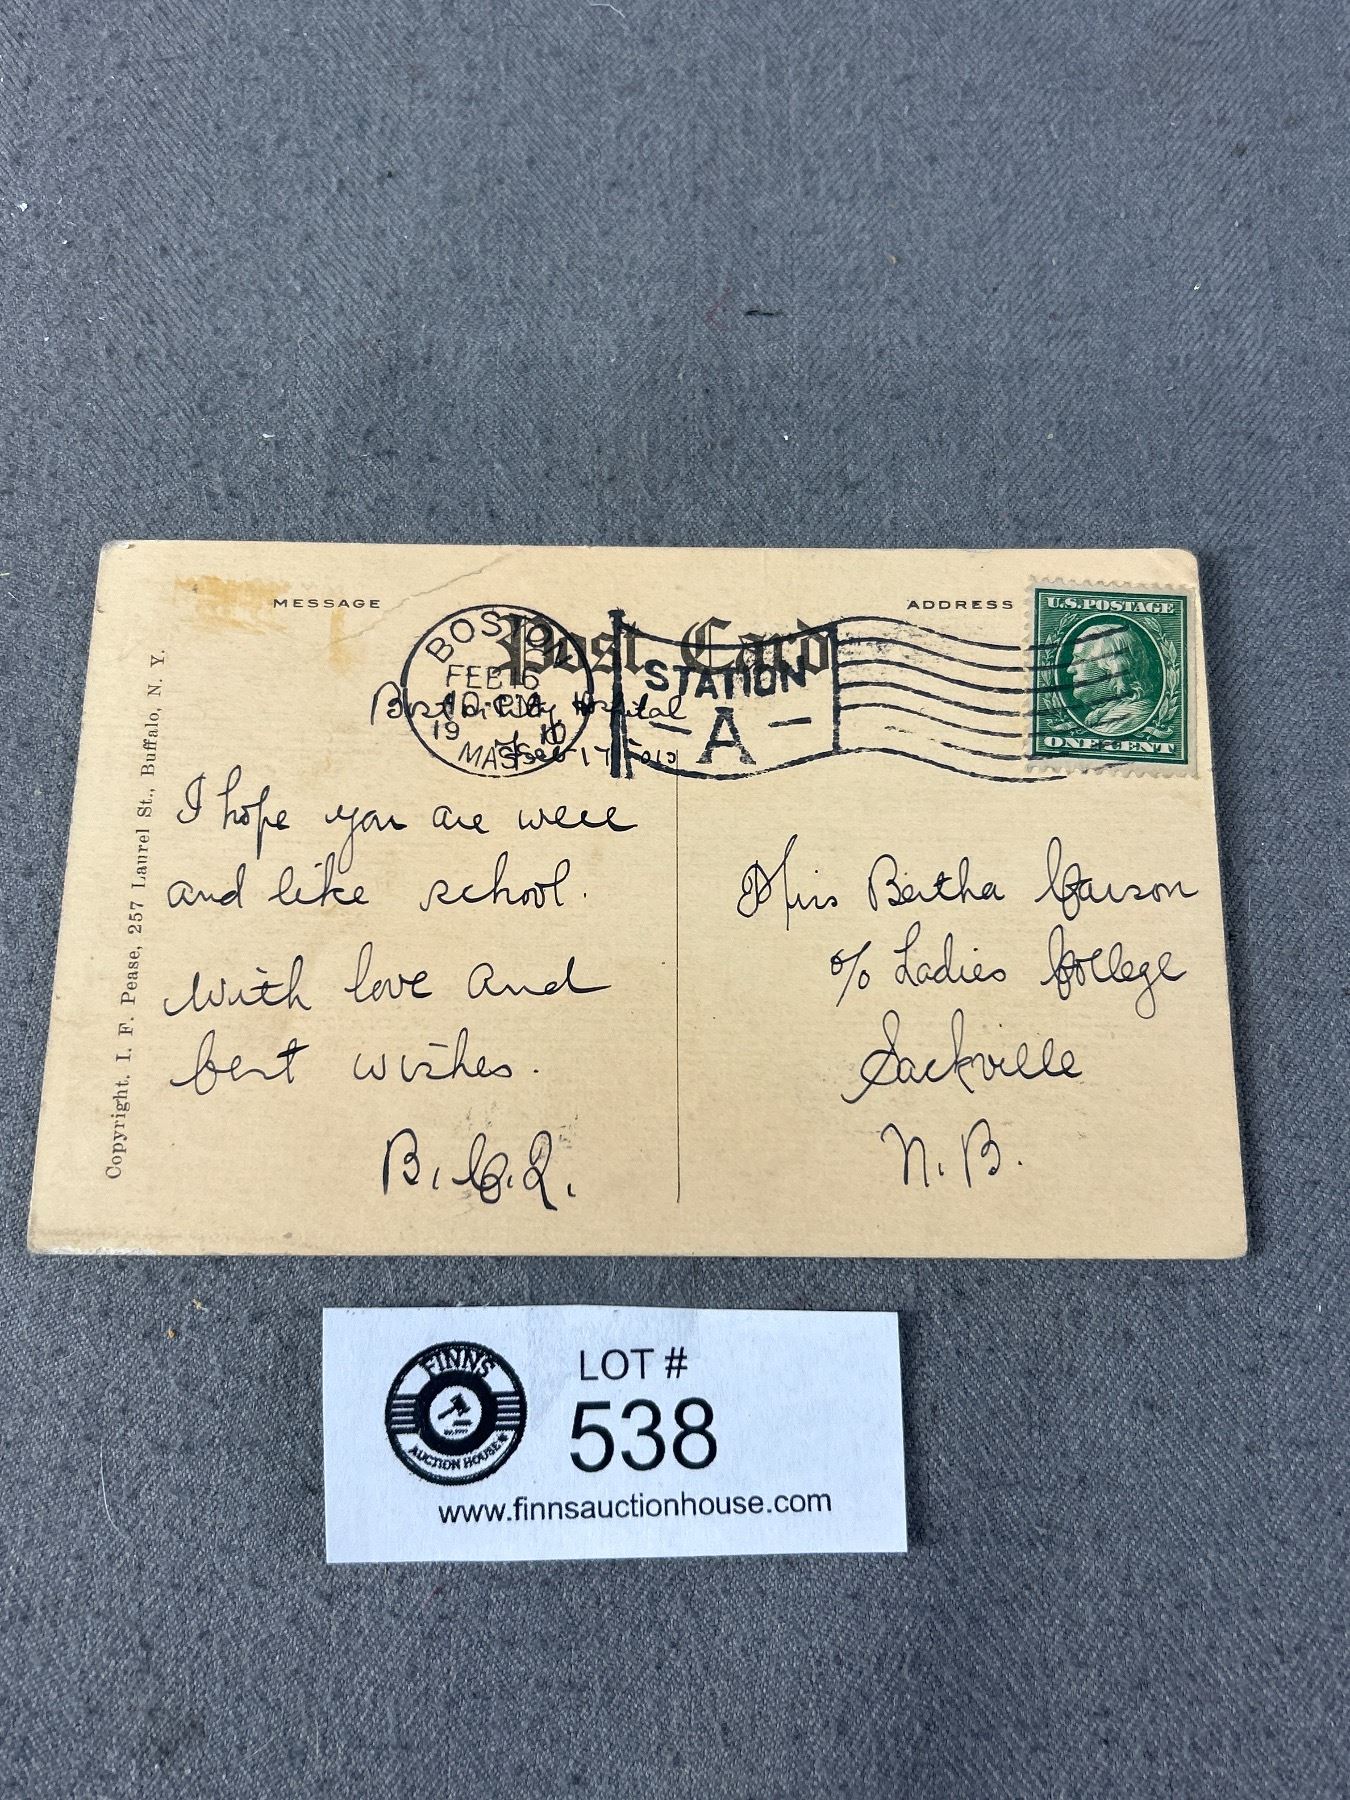 MESSAGE
Post Card
ADDRESS
U.S.POSTAGE
ONE CENT
BOSTON
FEB 16
PM
19 10
MASS
STATION
A
Boston City Hospital
Feb 17
I hope you are well
and like school.
With love and
best wishes.
B. C. L.
Miss Bertha Carson
c/o Ladies College
Sackville
N. B.
Copyright. I. F. Pease, 257 Laurel St., Buffalo, N. Y.
FINNS
AUCTION HOUSE
LOT #
538
www.finnsauctionhouse.com